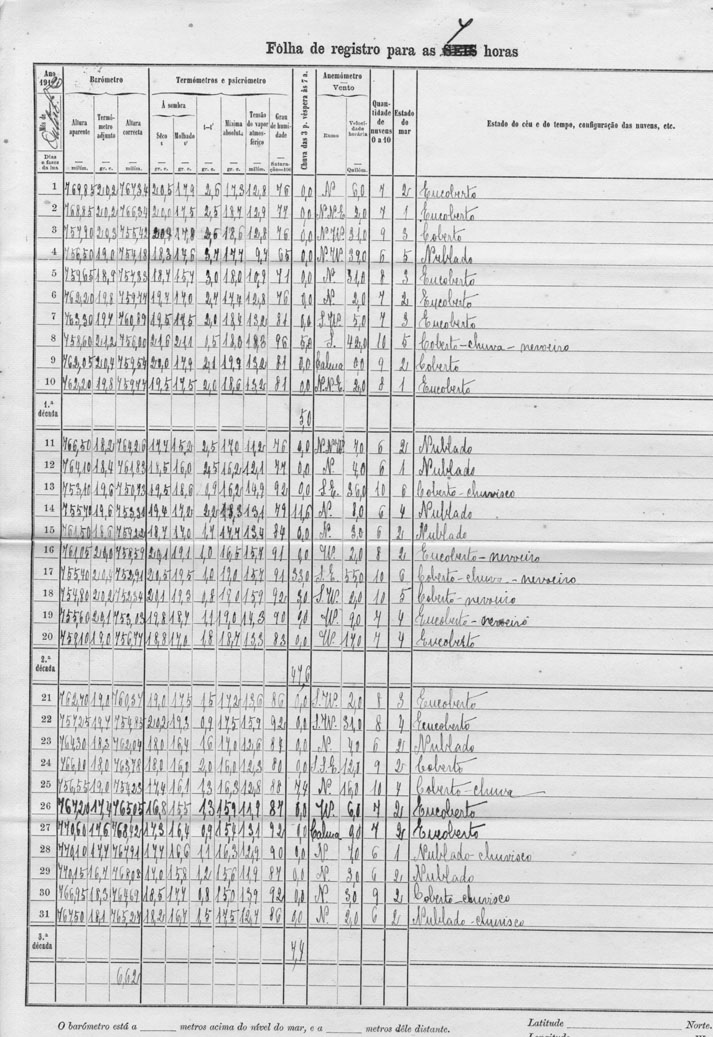 7
Fôlha de registro para as SEIS horas
Ano
Mês de
Dias e fases da lua
Barómetro
Altura aparente
milím.
Termómetro adjunto
gr. c.
Altura correcta
milím.
Termómetros e psicrómetro
Á sombra
Sêco t
gr. c.
Molhado t'
gr. c.
t—t'
gr. c.
Mínima absoluta
gr. c.
Tensão do vapor atmosférico
milím.
Grau de humidade
Saturação=100
Chuva das 3 p. véspera às 7 a.
Anemómetro
Vento
Rumo
Velocidade horária
Quilóm.
Quantidade de nuvens 0 a 10
Estado do mar
Estado do céu e do tempo, configuração das nuvens, etc.
1 769,85 20,2 767,34 20,5 17,9 2,6 17,3 12,8 76 0,0 N. 6,0 7 2 Encoberto
2 768,85 20,2 766,34 20,0 17,5 2,5 18,7 12,9 77 0,0 N.N.E. 2,0 7 1 Encoberto
3 757,90 20,3 755,42 17,8 2,6 18,6 12,8 76 0,0 N.W. 31,0 9 3 Coberto
4 756,50 19,0 754,18 17,6 3,7 17,7 9,7 65 0,0 N.W. 39,0 6 5 Nublado
5 759,65 18,9 757,33 18,7 15,7 3,0 18,0 10,9 71 0,0 N. 31,0 8 3 Encoberto
6 762,20 19,8 759,77 19,7 17,0 2,7 17,4 12,8 76 0,0 N. 2,0 7 2 Encoberto
7 763,30 19,7 760,89 19,5 17,5 2,0 18,4 13,2 81 0,0 S.W. 5,0 7 3 Encoberto
8 758,60 21,2 756,00 21,6 21,1 ,5 18,0 18,3 96 5,0 S. 42,0 10 5 Coberto-chuva-nevoeiro
9 762,05 20,4 759,54 20,0 17,9 2,1 19,9 13,2 81 0,0 Calma 0,0 9 2 Coberto
10 762,20 19,8 759,77 19,5 17,5 2,0 18,6 13,2 81 0,0 N.N.E. 2,0 8 1 Encoberto
1.ª década 5,0
11 766,50 18,2 764,26 17,7 15,2 2,5 17,0 11,2 76 0,0 N.NW. 7,0 6 2 Nublado
12 764,10 18,4 761,83 18,5 16,0 2,5 16,2 12,1 77 0,0 N. 4,0 6 1 Nublado
13 753,10 19,6 750,73 19,5 18,6 0,9 16,2 14,9 92 0,0 S.E. 36,0 10 6 Coberto-chuvisco
14 755,70 19,6 753,30 19,4 17,2 2,2 18,3 13,1 79 11,6 N. 8,0 6 4 Nublado
15 761,50 18,6 759,22 18,7 17,0 1,7 17,7 13,4 84 0,0 N. 3,0 6 2 Nublado
16 761,05 20,0 758,59 20,1 19,1 1,0 16,5 15,7 91 0,0 W. 2,0 8 2 Encoberto-nevoeiro
17 755,40 20,4 752,91 20,5 19,5 1,0 19,0 15,7 91 33,0 S.E. 55,0 10 6 Coberto-chuva-nevoeiro
18 754,80 20,2 752,34 20,1 19,3 0,8 18,0 15,9 92 3,0 S.W. 2,0 10 5 Coberto-nevoeiro
19 755,60 20,1 753,03 19,8 18,7 1,1 19,0 14,3 90 W. 9,0 7 4 Encoberto-nevoeiro
20 759,10 19,0 756,77 18,8 17,0 1,8 18,7 13,3 83 0,0 W. 17,0 7 4 Encoberto
2.ª década 47,6
21 762,70 19,0 760,37 19,0 17,5 1,5 17,2 13,6 86 0,0 S.W. 2,0 8 3 Encoberto
22 757,25 19,7 754,85 20,2 19,3 0,9 17,5 15,9 92 0,0 S.W. 31,0 8 4 Encoberto
23 764,30 18,3 762,04 18,0 16,4 1,6 17,0 12,6 84 0,0 N. 4,0 6 2 Nublado
24 18,0 763,78 18,0 16,0 2,0 16,0 12,3 80 0,0 S.S.E. 12,0 9 2 Coberto
25 756,55 19,0 754,23 17,4 16,1 1,3 16,3 12,8 88 7,4 N. 16,0 10 4 Coberto-chuva
26 767,20 17,4 765,05 16,8 15,5 1,3 15,9 11,9 87 0,0 W. 6,0 7 2 Encoberto
27 770,60 17,6 768,42 17,3 16,4 0,9 15,4 13,1 92 0,0 Calma 0,0 7 2 Encoberto
28 770,10 17,7 767,91 17,7 16,6 1,1 16,3 12,9 90 0,0 N. 7,0 6 1 Nublado-chuvisco
29 770,15 16,7 768,08 17,0 15,8 1,2 15,6 11,9 87 0,0 N. 3,0 6 2 Nublado
30 766,95 18,3 764,69 18,5 17,7 0,8 15,0 13,9 92 0,0 N. 3,0 9 2 Coberto-chuvisco
31 767,50 18,1 765,27 18,2 16,7 1,5 17,5 12,7 86 0,0 N. 2,0 6 2 Nublado-chuvisco
3.ª década 7,4
6,62
O barómetro está a ______ metros acima do nível do mar, e a ______ metros dêle distante.
Latitude ______ Norte.
Longitude